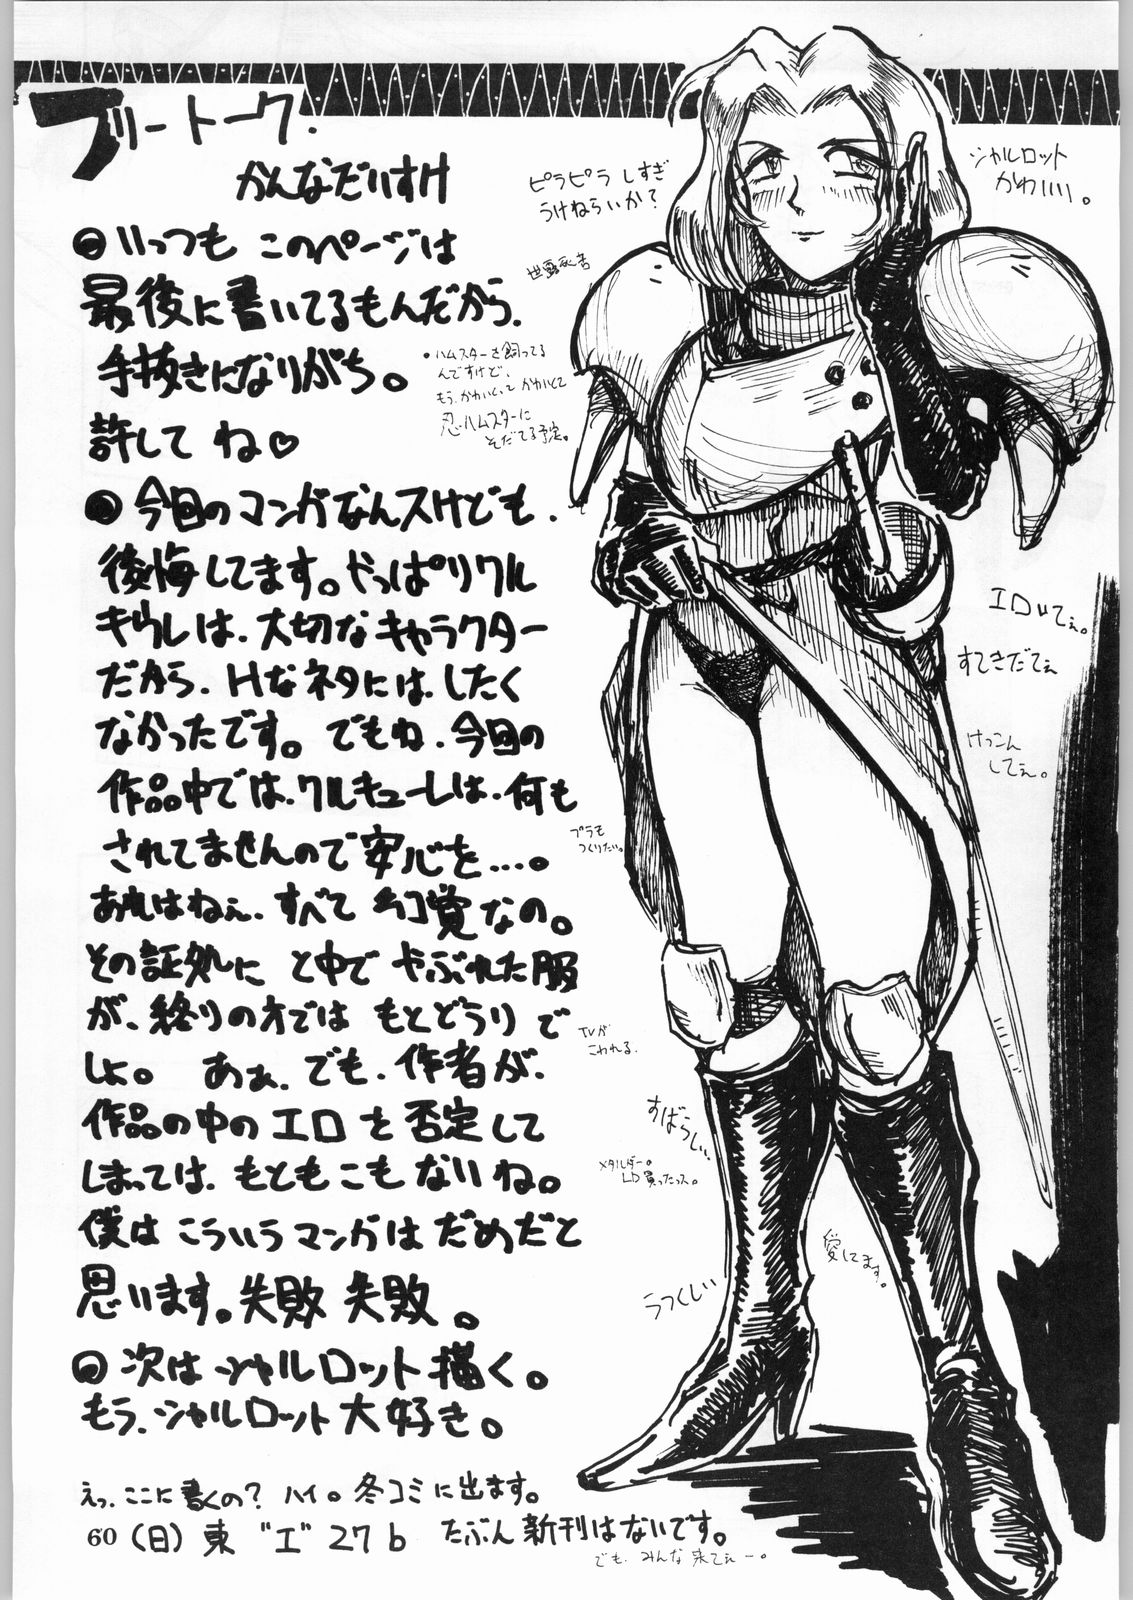 フリートーク.
かんなだいすけ
いっつも このページは
最後に書いてるもんだから、
手抜きになりがち。
許して ね♡
今回のマンガなんスけども、
後悔してます。やっぱりクル
キゥレは、大切なキャラクター
だから、Hなネタにはしたく
なかったです。でもね、今回の
作品中では、クルキューレは、何も
されてませんので安心を…。
あれはねぇ、すべて幻覚なの。
その証処に と中で やぶれた服
が、終りの方では もとどうりで
しょ。 あぁ、でも、作者が、
作品の中のエロを否定して
しまっては、もともこもないね。
僕は こういうマンガは だめだと
思います。失敗 失敗。
次は シャルロット描く。
もう、シャルロット大好き。
えっ、ここに書くの? ハイ。冬コミに出ます。
60 (日) 東 "エ" 27b たぶん新刊はないです。
でも、みんな来てぇー。
ピラピラ しすぎ
うけねらいか?
シャルロット
かわいい。
・ハムスターを飼ってる
んですけど、
もう、かわいくって かわいくて
忍ハムスターに
そだてる予定。
エロいてぇ。
すてきだてぇ
けっこん
してぇ。
プラも
つくりたい。
TVが
こわれる.
すばらしい、
メタルダー。
LD買ったっス。
愛してます。
うつくしい